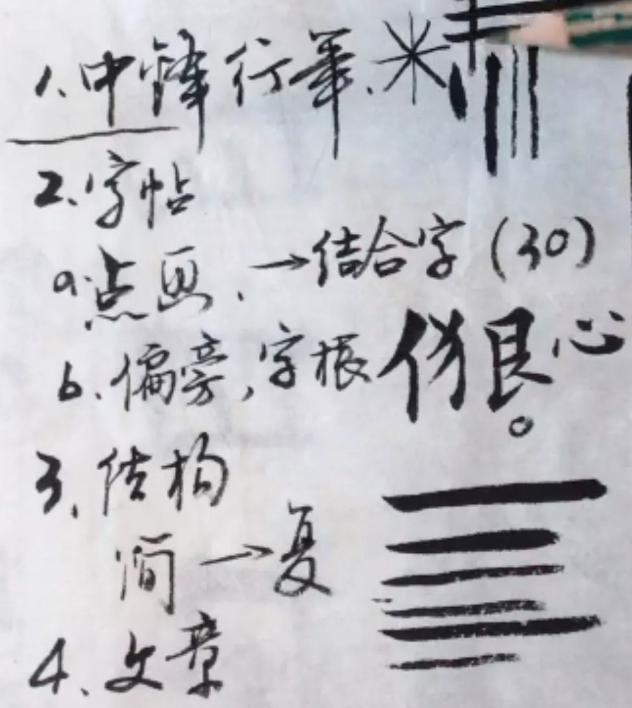 1、中锋行筆、米
2、字帖
a.点画、→结合字(30)
b、偏旁,字根 亻易良心。
3、结构
简→复
4、文章